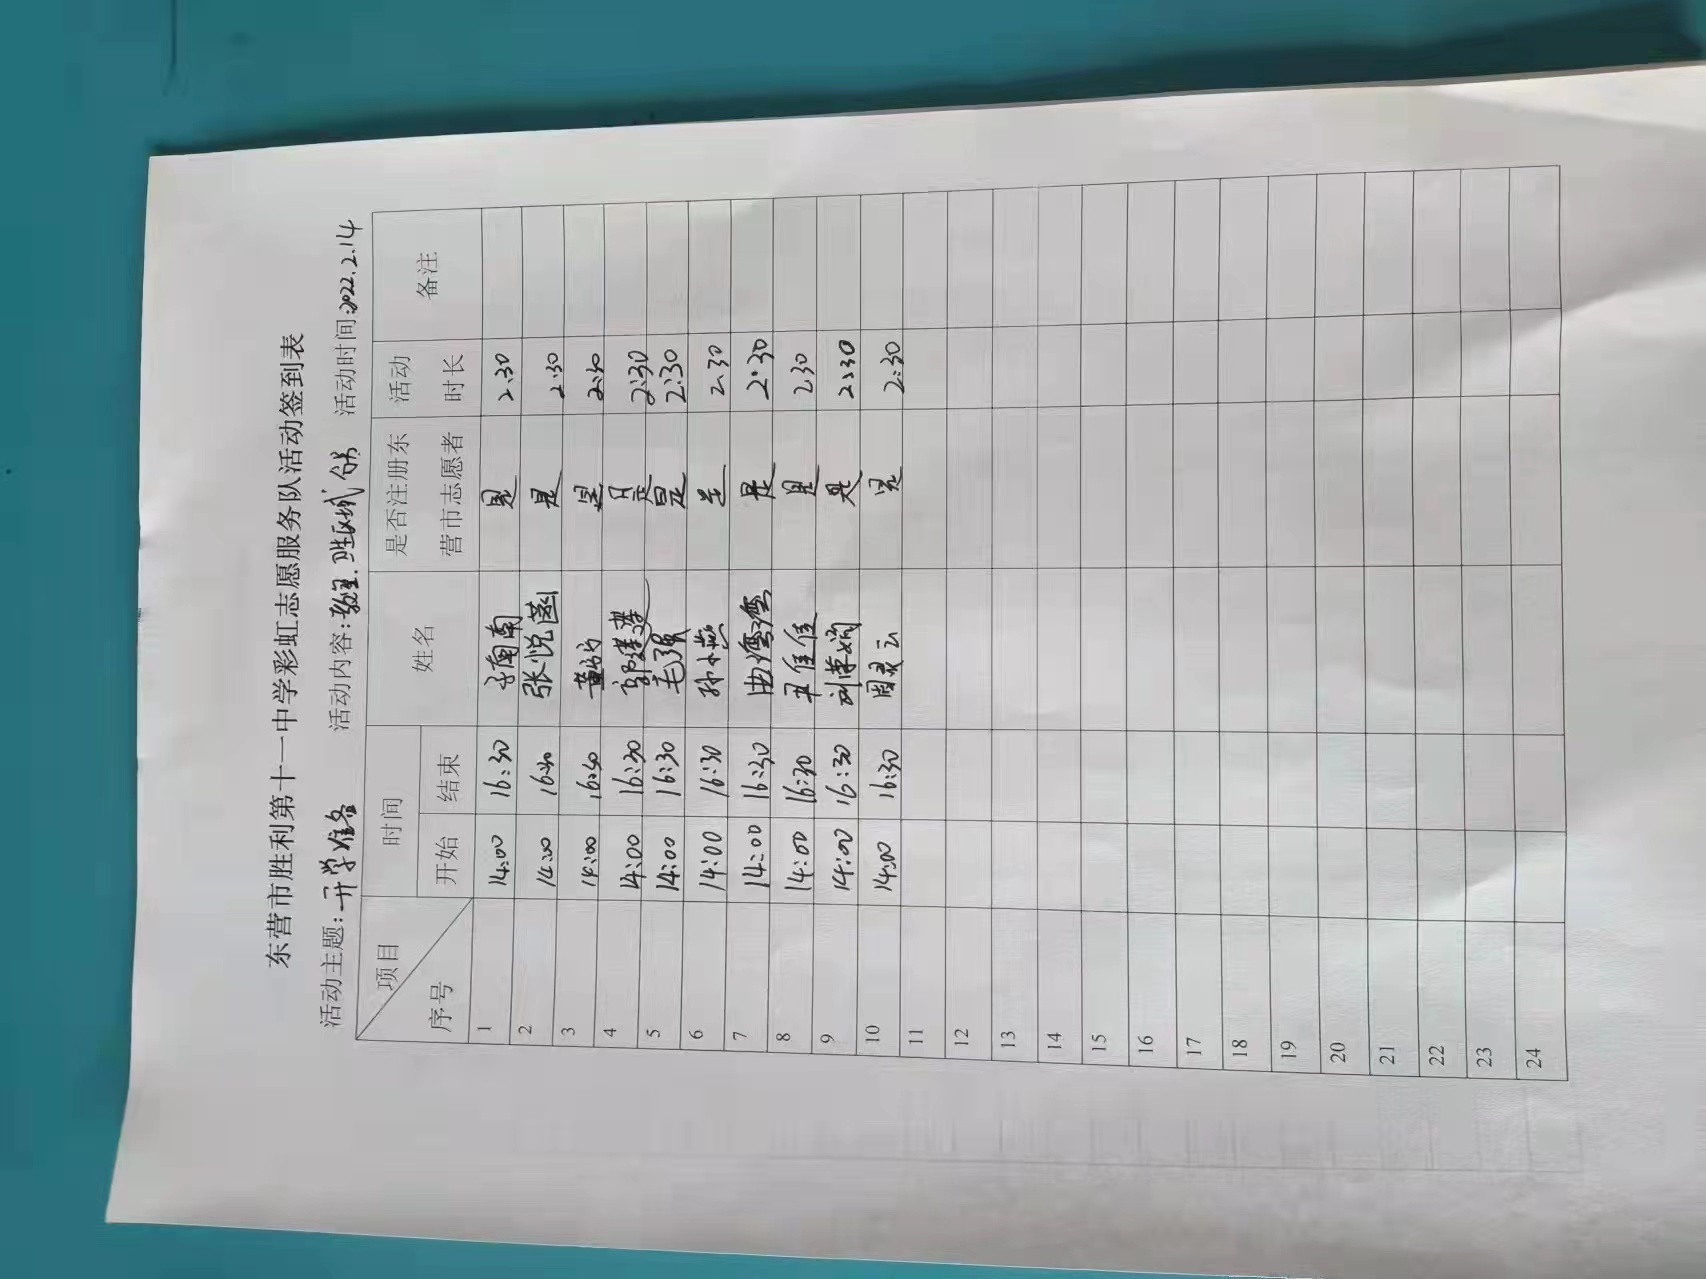 东营市胜利第十一中学彩虹志愿服务队活动签到表
活动主题:开学准备 活动内容: 活动时间:2022.2.14
项目 序号 时间 姓名 是否注册东营市志愿者 活动时长 备注
开始 结束
1 14:00 16:30 南南 是 2:30
2 14:00 16:30 张悦菡 是 2:30
3 14:00 16:30 是 2:30
4 14:00 16:30 郭 是 2:30
5 14:00 16:30 毛强 是 2:30
6 14:00 16:30 孙小燕 是 2:30
7 14:00 16:30 曲 是 2:30
8 14:00 16:30 尹佳佳 是 2:30
9 14:00 16:30 刘荣娟 是 2:30
10 14:00 16:30 周灵云 是 2:30
11
12
13
14
15
16
17
18
19
20
21
22
23
24